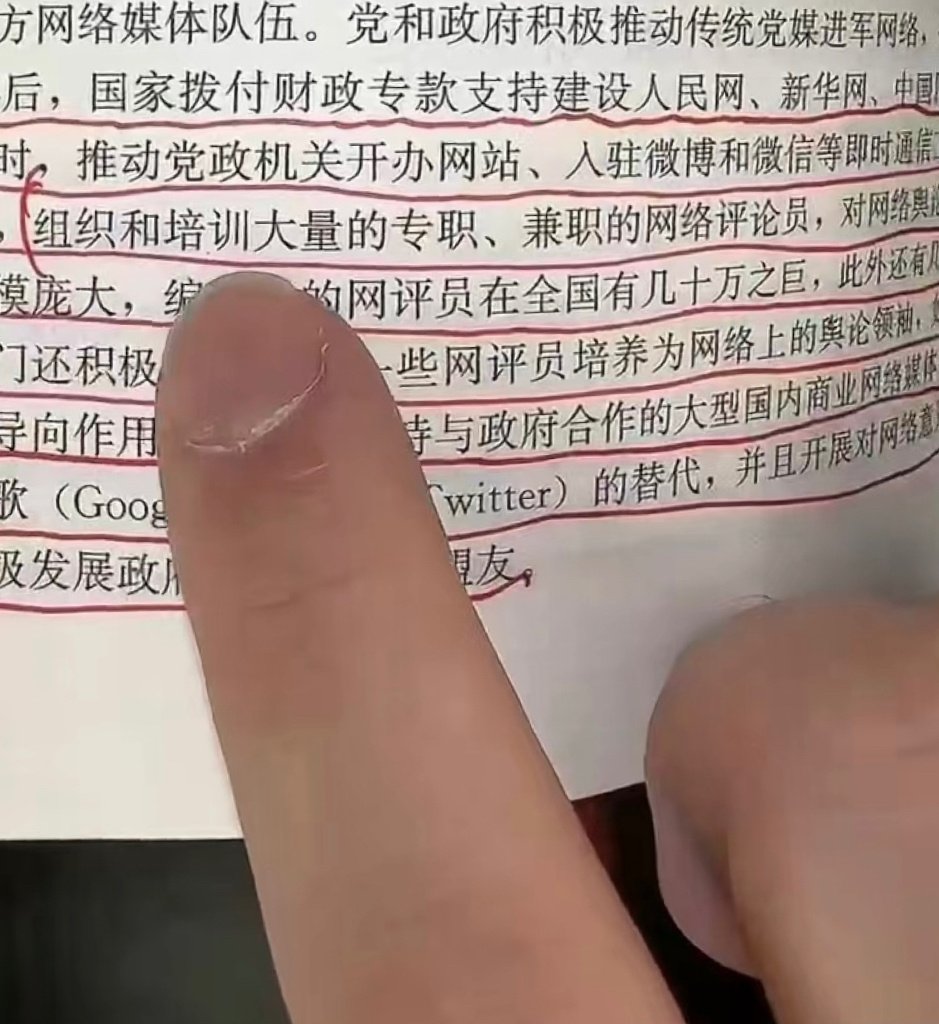 方网络媒体队伍。党和政府积极推动传统党媒进军网络，
后，国家拨付财政专款支持建设人民网、新华网、中国
时，推动党政机关开办网站、入驻微博和微信等即时通信
，组织和培训大量的专职、兼职的网络评论员，对网络舆
模庞大，编 的网评员在全国有几十万之巨，此外还有
门还积极 一些网评员培养为网络上的舆论领袖，
导向作用 持与政府合作的大型国内商业网络媒体
歌（Goog Twitter）的替代，并且开展对网络意
极发展政府 盟友。